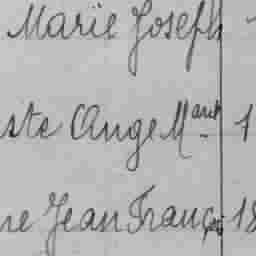 Marie Joseph
ste Ange Mart 1
ne Jean Franç 18